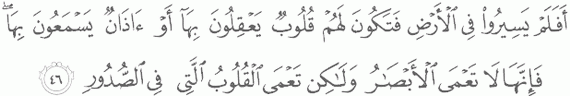 أَفَلَمْ يَسِيرُوا۟ فِى ٱلْأَرْضِ فَتَكُونَ لَهُمْ قُلُوبٌ يَعْقِلُونَ بِهَآ أَوْ ءَاذَانٌ يَسْمَعُونَ بِهَا ۖ
فَإِنَّهَا لَا تَعْمَى ٱلْأَبْصَـٰرُ وَلَـٰكِن تَعْمَى ٱلْقُلُوبُ ٱلَّتِى فِى ٱلصُّدُورِ ٤٦